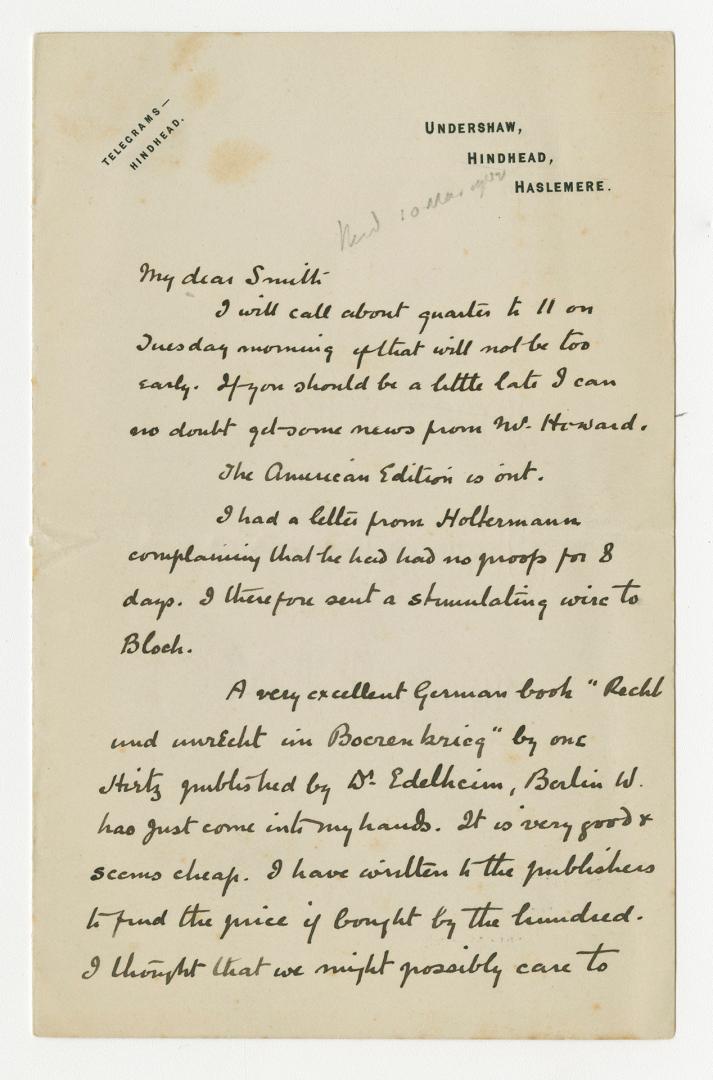 TELEGRAMS—
HINDHEAD.
UNDERSHAW,
HINDHEAD,
HASLEMERE.
10 Mar 1902
My dear Smith
I will call about quarter to 11 on
Tuesday morning if that will not be too
early. If you should be a little late I can
no doubt get some news from Mr. Howard.
The American Edition is out.
I had a letter from Holtermann
complaining that he had had no proofs for 8
days. I therefore sent a stimulating wire to
Bloch.
A very excellent German book "Recht
und unrecht im Boerenkrieg" by one
Hirtz published by Dr. Edelheim, Berlin W.
has just come into my hands. It is very good &
seems cheap. I have written to the publishers
to find the price if bought by the hundred.
I thought that we might possibly care to